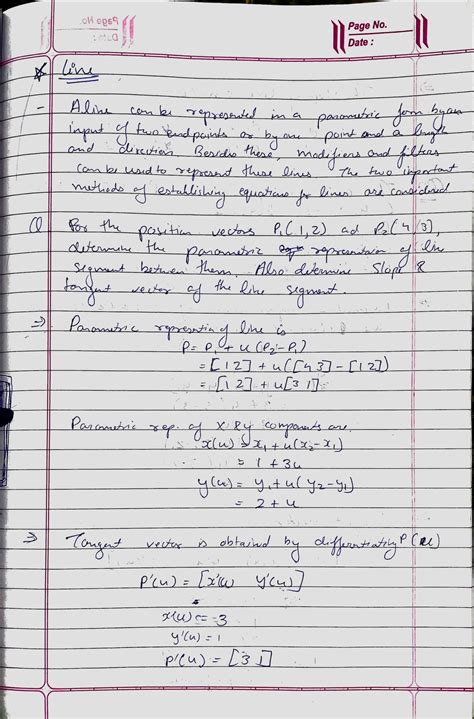 Page No.
Date :
* Line
- A line can be represented in a parametric form by an
input of two endpoints or by one point and a length
and direction. Besides these, modifiers and filters
can be used to represent these lines. The two important
methods of establishing equations for lines are considered
Q) For the position vectors P₁(1,2) ad P₂[4 3],
determine the parametric representain of line
segment between them, Also determine Slope &
tangent vector of the line segment.
⇒ Parametric representing line is
P = P₁ + u(P₂-P₁)
= [1 2] + u([4 3] - [1 2])
= [1 2] + u[3 1]
Parametric rep. of X & y components are
x(u) = x₁ + u(x₂-x₁)
= 1 + 3u
y(u) = y₁ + u(y₂-y₁)
= 2 + u
⇒ Tangent vector is obtained by differentiating P(u)
P'(u) = [x'(u) y'(u)]
x'(u) = 3
y'(u) = 1
P'(u) = [3 1]